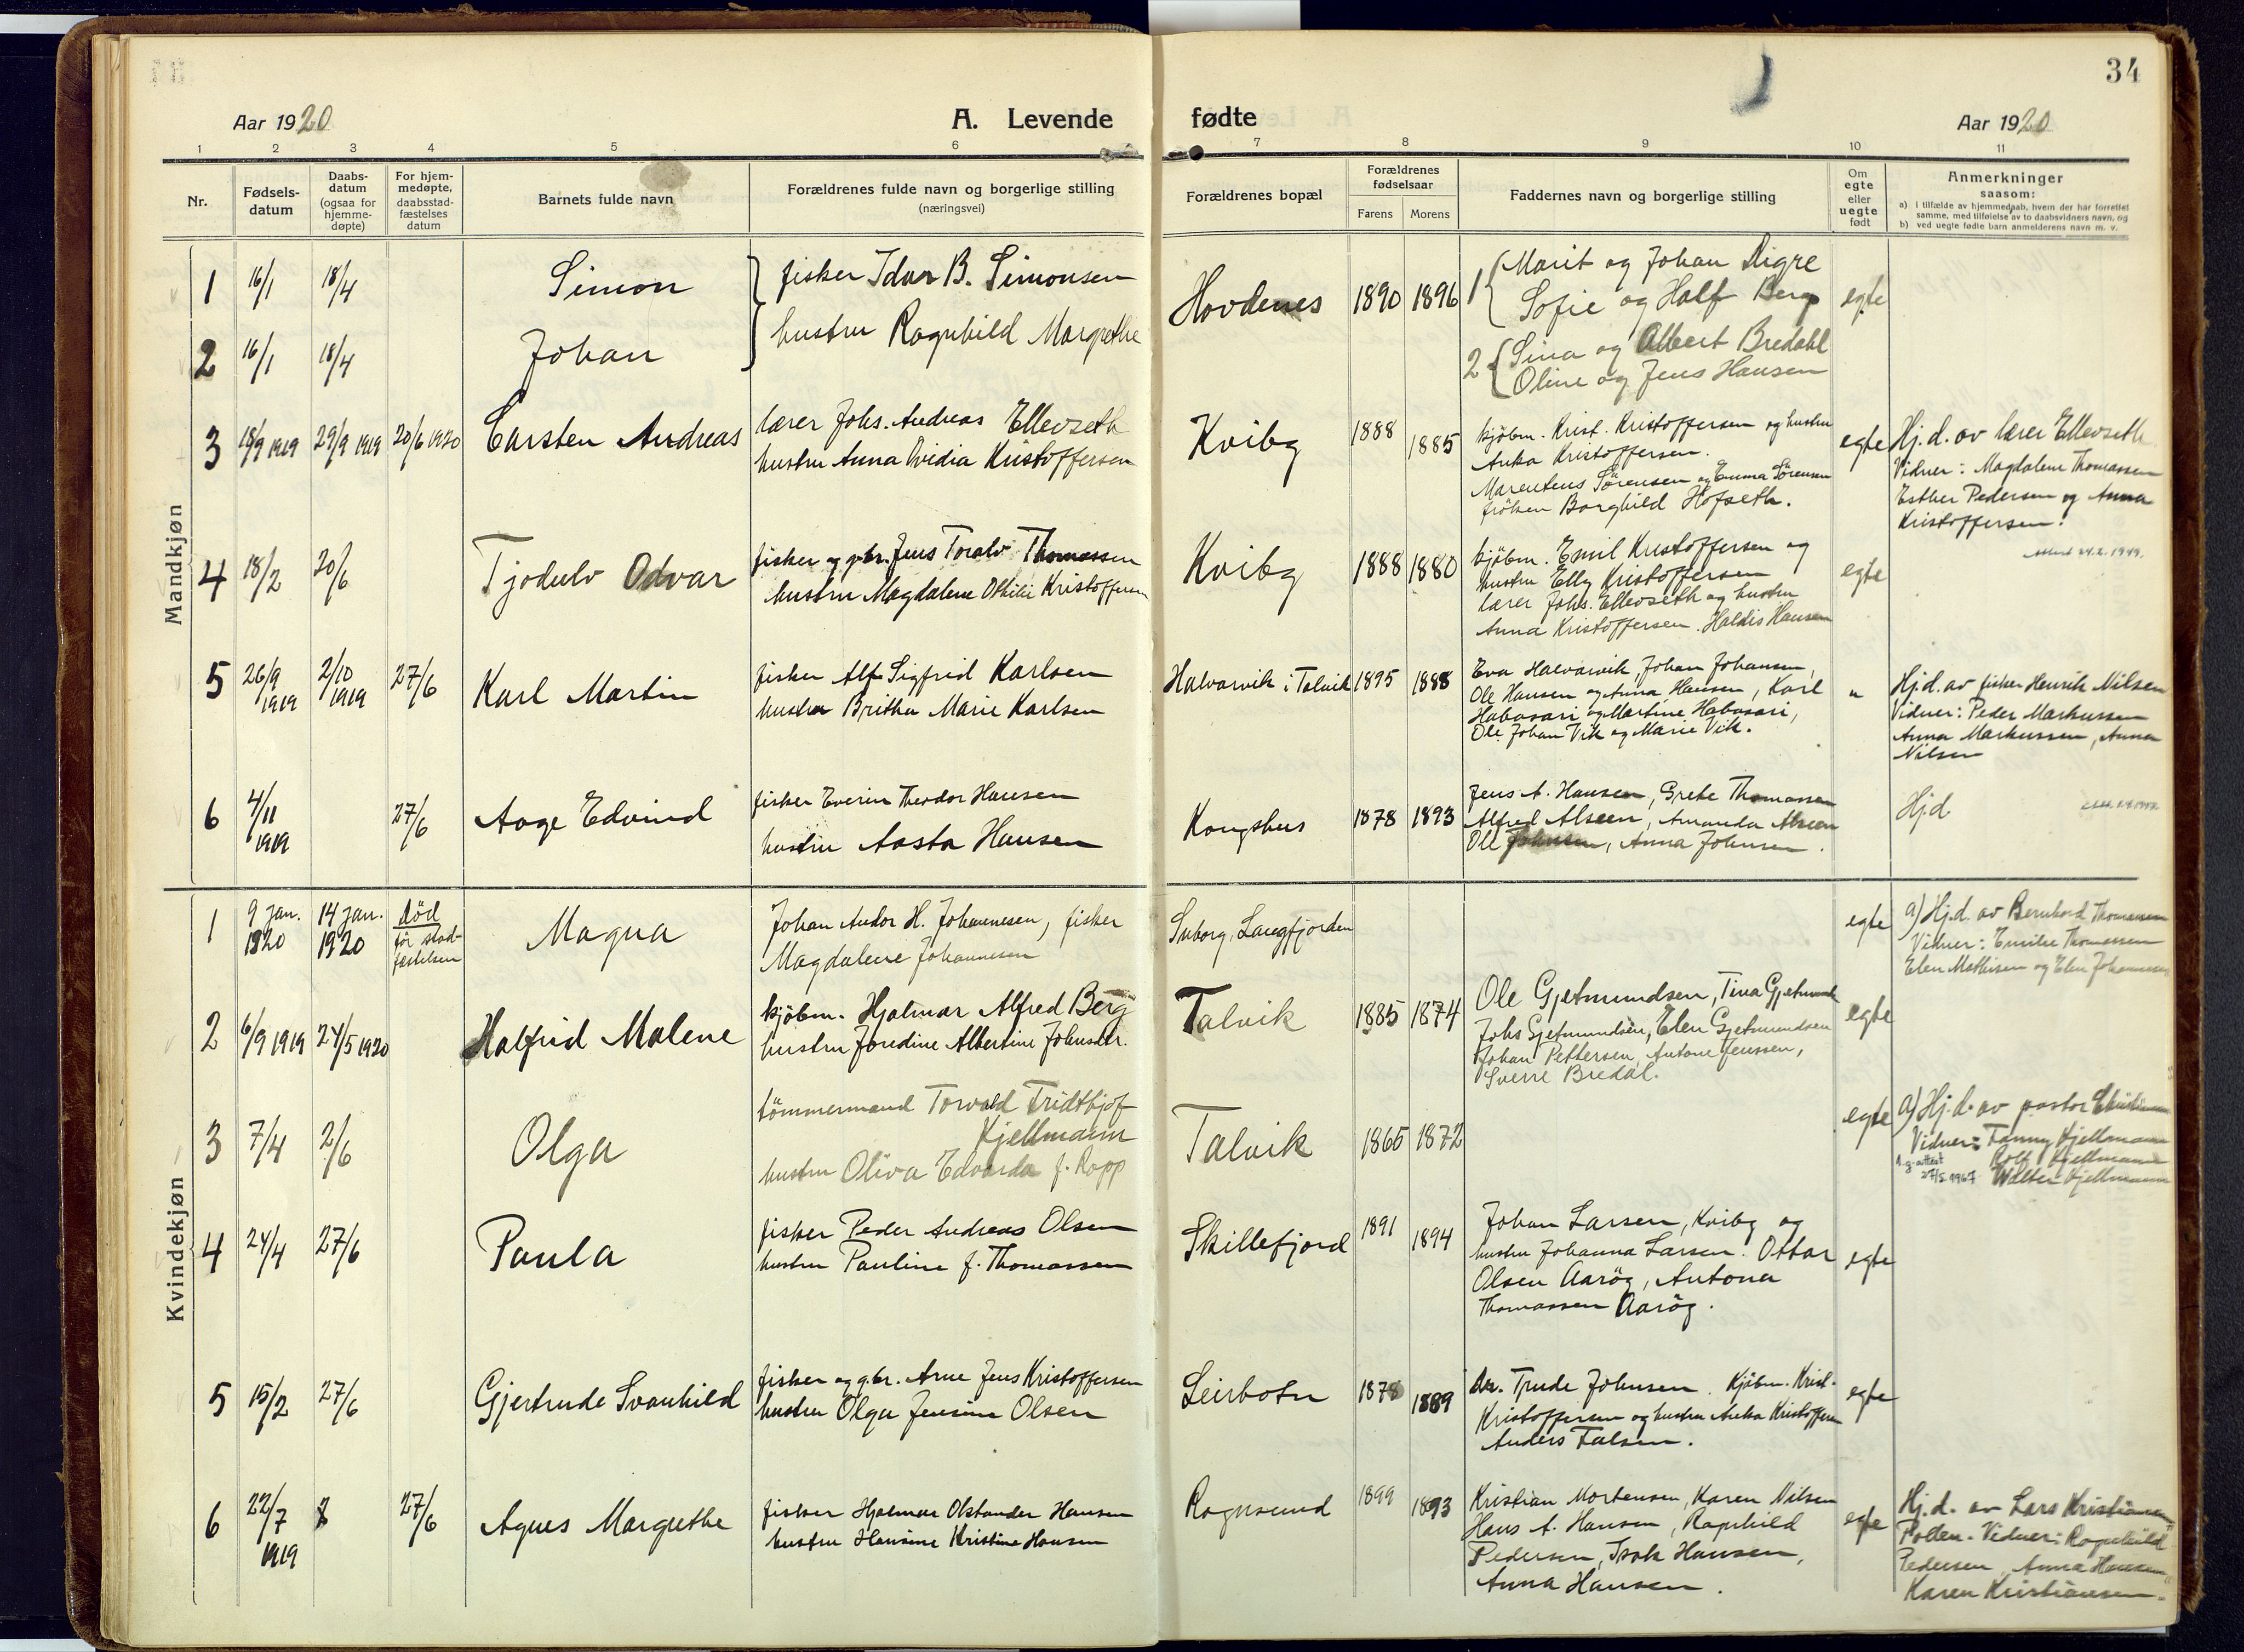 34
Aar 1920
A. Levende
fødte
Aar 1920
1 2 3 4 5 6 7 8 9 10 11
Nr.
Fødsels-
datum
Daabs-
datum
(ogsaa for
hjemme-
døpte)
For hjem-
medøpte,
daabsstad-
fæstelses
datum
Barnets fulde navn
Forældrenes fulde navn og borgerlige stilling
(næringsvei)
Forældrenes bopæl
Forældrenes
fødselsaar
Farens Morens
Faddernes navn og borgerlige stilling
Om
egte
eller
uegte
født
Anmerkninger
saasom:
a) i tilfælde av hjemmedaab, hvem der har forrettet
samme, med tilføielse av to daabsvidners navn, og
b) ved uegte fødte barn anmelderens navn m. v.
Mandkjøn
1 16/1 18/4 Simon
fisker Idar B. Simonsen
hustru Ragnhild Margrethe
Hovdenes 1890 1896
1 Marit og Johan Digre
Sofie og Halfr Berg
egte
2 16/1 18/4 Johan
2 Sina og Albert Bredahl
Oline og Jens Hansen
3 18/9 1919 29/9 1919 20/6 1920 Carsten Andreas
lærer Johs. Andreas Ellevseth
hustru Anna Ovidia Kristoffersen
Kviby 1888 1885
kjøbm. Krist. Kristoffersen og hustru
Anka Kristoffersen.
Marentius Sörensen og Emma Sörensen
fröken Borghild Hofseth.
egte
Hj.d. av lærer Ellevseth
Vidner: Magdalene Thomassen
Esther Pedersen og Anna
Kristoffersen.
4 18/2 20/6 Tjodulv Odvar
fisker og gbr. Jens Toralv Thomassen
hustru Magdalene Othilie Kristoffersen
Kviby 1888 1880
kjøbm. Emil Kristoffersen og
hustru Elly Kristoffersen
lærer Johs. Ellevseth og hustru
Anna Kristoffersen. Haldis Hansen
egte
Attest 24.2.1949.
5 26/9 1919 2/10 1919 27/6 Karl Martin
fisker Alf Sigfrid Karlsen
hustru Britha Marie Karlsen
Halvarvik i Talvik 1895 1888
Eva Halvarvik, Johan Johansen,
Ole Hansen og Anna Hansen, Karl
Habasari og Martine Habasari,
Ole Johan Vik og Marie Vik.
"
Hj.d. av fisker Henrik Nilsen
Vidner: Peder Markussen
Anna Markussen, Anna
Nilsen
6 4/11 1919 27/6 Aage Edvind
fisker Everin Theodor Hansen
hustru Aasta Hansen
Kongshus 1878 1893
Jens A. Hansen, Grete Thomassen
Alfred Alseen, Amanda Alseen
Ole Johnsen, Anna Johnsen.
Hj.d
Kvindekjøn
1 9 jan. 1920 14 jan. 1920 Död
før stad-
fæstelsen
Magna
Johan Andor H. Johannesen, fisker
Magdalene Johannesen
Langfjorden
egte
a) Hj.d. av Bernhard Thomassen
Vidner: Emilie Thomassen
Elen Mathisen og Elen Johannesen
2 6/9 1919 24/5 1920 Halfrid Malene
kjøbm. Hjalmar Alfred Berg
hustru Joredine Albertine Johnsdtr.
Talvik 1885 1874
Ole Gjetmundsen, Tina Gjetmunds
Johs Gjetmundsen, Elen Gjetmundsen
Johan Pettersen, Antone Jenssen,
Sverre Bredal.
egte
3 7/4 2/6 Olga
tömmermand Torvald Fridthjof
Kjellmann
hustru Oliva Edvarda f. Ropp
Talvik 1865 1872
egte
a) Hj.d. av pastor
Vidner: Fanny Kjellmann
Rolf Kjellmann
Walter Kjellmann
27/5 1967
4 24/4 27/6 Paula
fisker Peder Andreas Olsen
hustru Pauline f. Thomassen
Skillefjord 1891 1894
Johan Larsen, Kviby og
hustru Johanna Larsen. Ottar
Olsen Aaröy, Antona
Thomassen Aaröy.
egte
5 15/2 27/6 Gjertrude Svanhild
fisker og gbr. Arne Jens Kristoffersen
hustru Olga Jensine Olsen
Leirbotn 1878 1889
Trude Johnsen. Kjöbm. Krist.
Kristoffersen og hustru Anka Kristoffersen
Anders Falsen.
egte
6 22/7 1919 27/6 Agnes Margrethe
fisker Hjalmar Olstander Hansen
hustru Hansine Kristine Hansen
Rognsund 1899 1893
Kristian Mortensen, Karen Nilsen
Hans A. Hansen, Ragnhild
Pedersen, Isak Hansen,
Anna Hansen.
egte
Hj.d. av Lars Kristiansen
Pollen. Vidner: Ragnhild
Pedersen, Anna Hansen,
Karen Kristiansen.